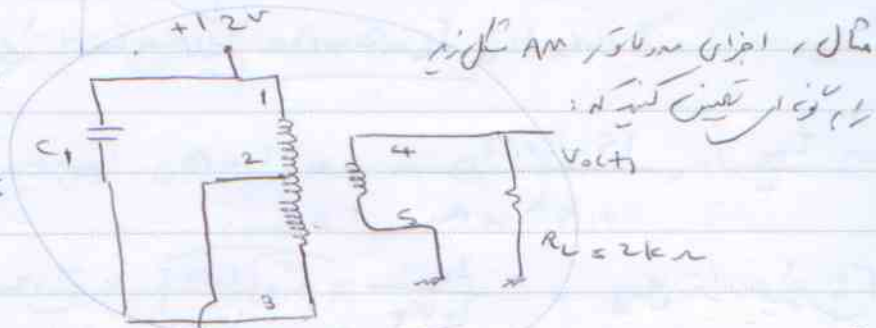 مثال، اجزای مدولاتور AM شکل زیر
را به گونه ای تعیین کنید که:
+12V
1
C1
2
3
4
5
Vo(t)
RL = 2kΩ